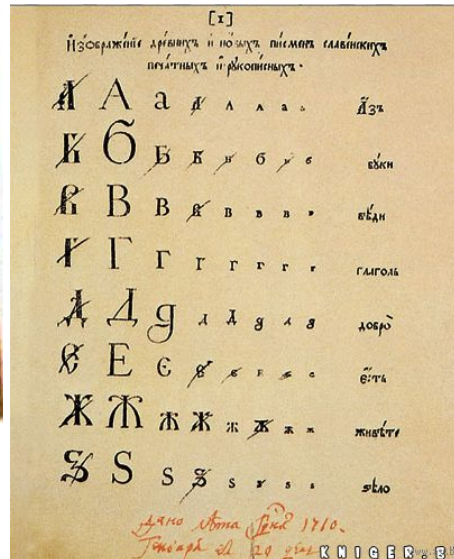 [1]
Изображенїе древнихъ и новыхъ письменъ славенскихъ
печатныхъ и рукописныхъ.
А А а а А А а а Азъ
Б Б Б Б Б б б буки
В В В В В В В В вѣди
Г Г Г Г Г Г Г Г глаголь
Д Д д д Д д д д добро
Є Е Є Є Є Є Є есть
Ж Ж Ж Ж Ж Ж Ж Ж живѣте
Ѕ Ѕ Ѕ Ѕ Ѕ Ѕ Ѕ Ѕ ѕѣло
дано лѣта 1710.
Генваря 29
KNIGER